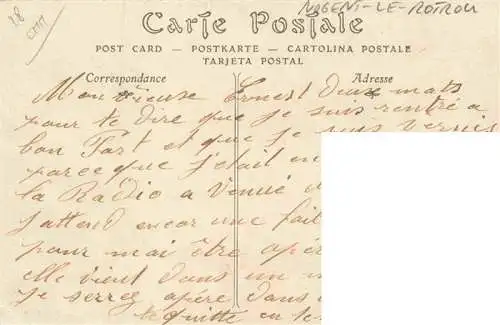 NOGENT-LE-ROTROU
28
Carte Postale
POST CARD — POSTKARTE — CARTOLINA POSTALE
TARJETA POSTAL
Correspondance
Adresse
Mon Ernest deux mots
pour te dire que je suis rentré a
bon Fort et que je suis
parce que j'etait en
la Radio a Venue
j'attend encor une foi
pour moi être opér
elle vient dans un m
je serrez opére dans
te quitte en te